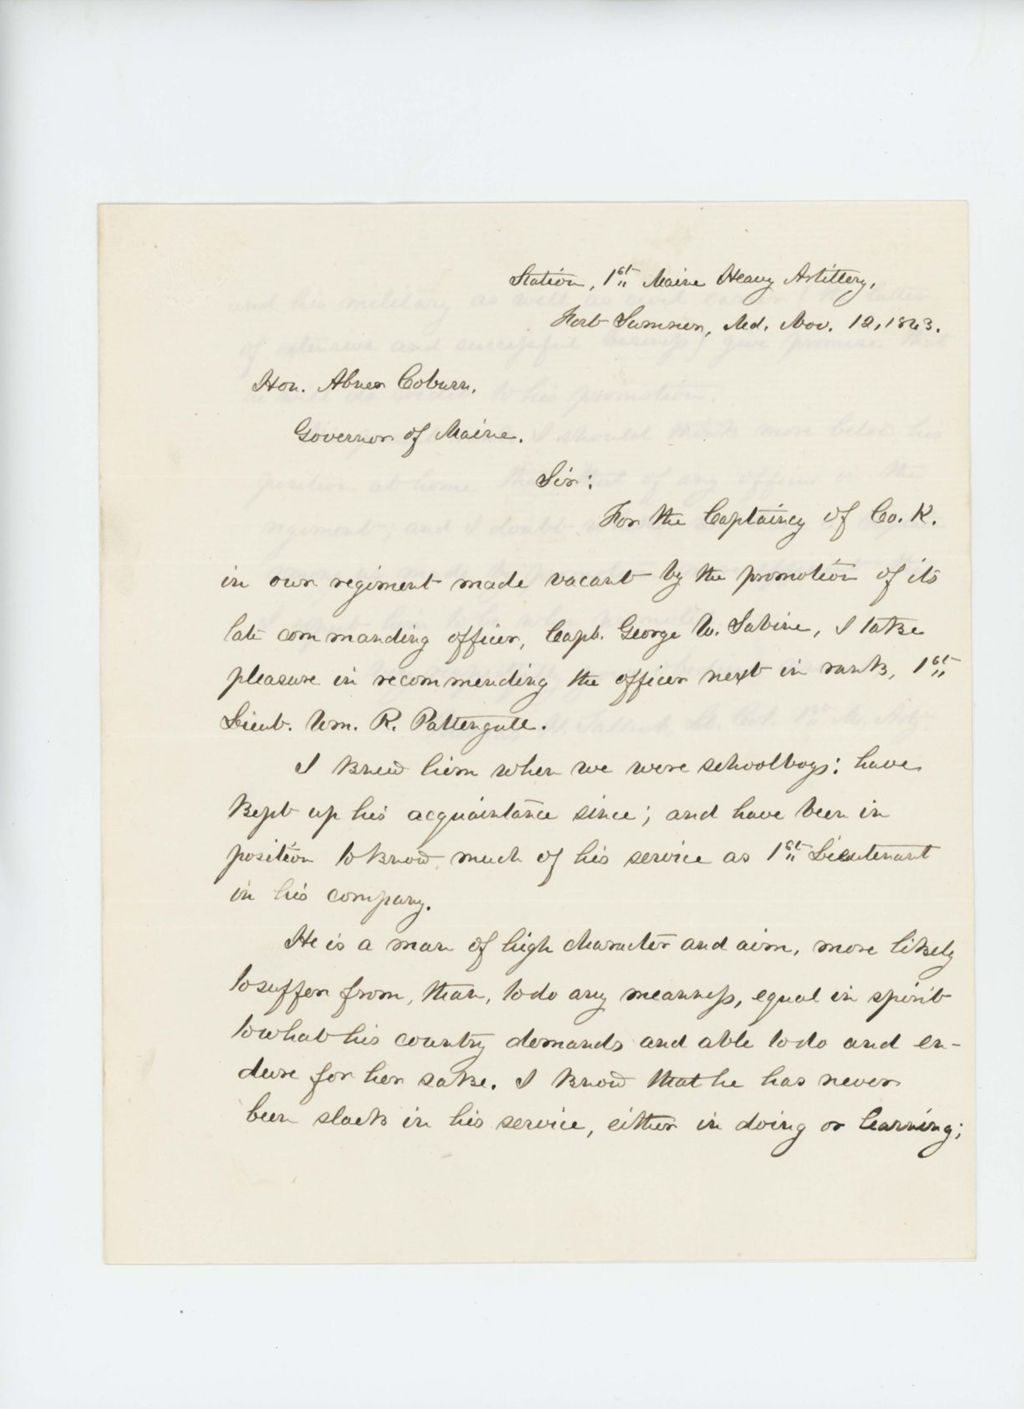 Station, 1st Maine Heavy Artillery,
Fort Sumner, Md. Nov. 12, 1863.
Hon. Abner Coburn,
Governor of Maine.
Sir:
For the Captaincy of Co. K.
in our regiment made vacant by the promotion of its
late commanding officer, Capt. George W. Sabine, I take
pleasure in recommending the officer next in rank, 1st
Lieut. Wm. R. Pattengall.
I knew him when we were schoolboys: have
kept up his acquaintance since; and have been in
position to know much of his service as 1st Lieutenant
in his company.
He is a man of high character and aim, more likely
to suffer from, than, to do any meanness, equal in spirit
to what his country demands and able to do and en-
dure for her sake. I know that he has never
been slack in his service, either in doing or learning;